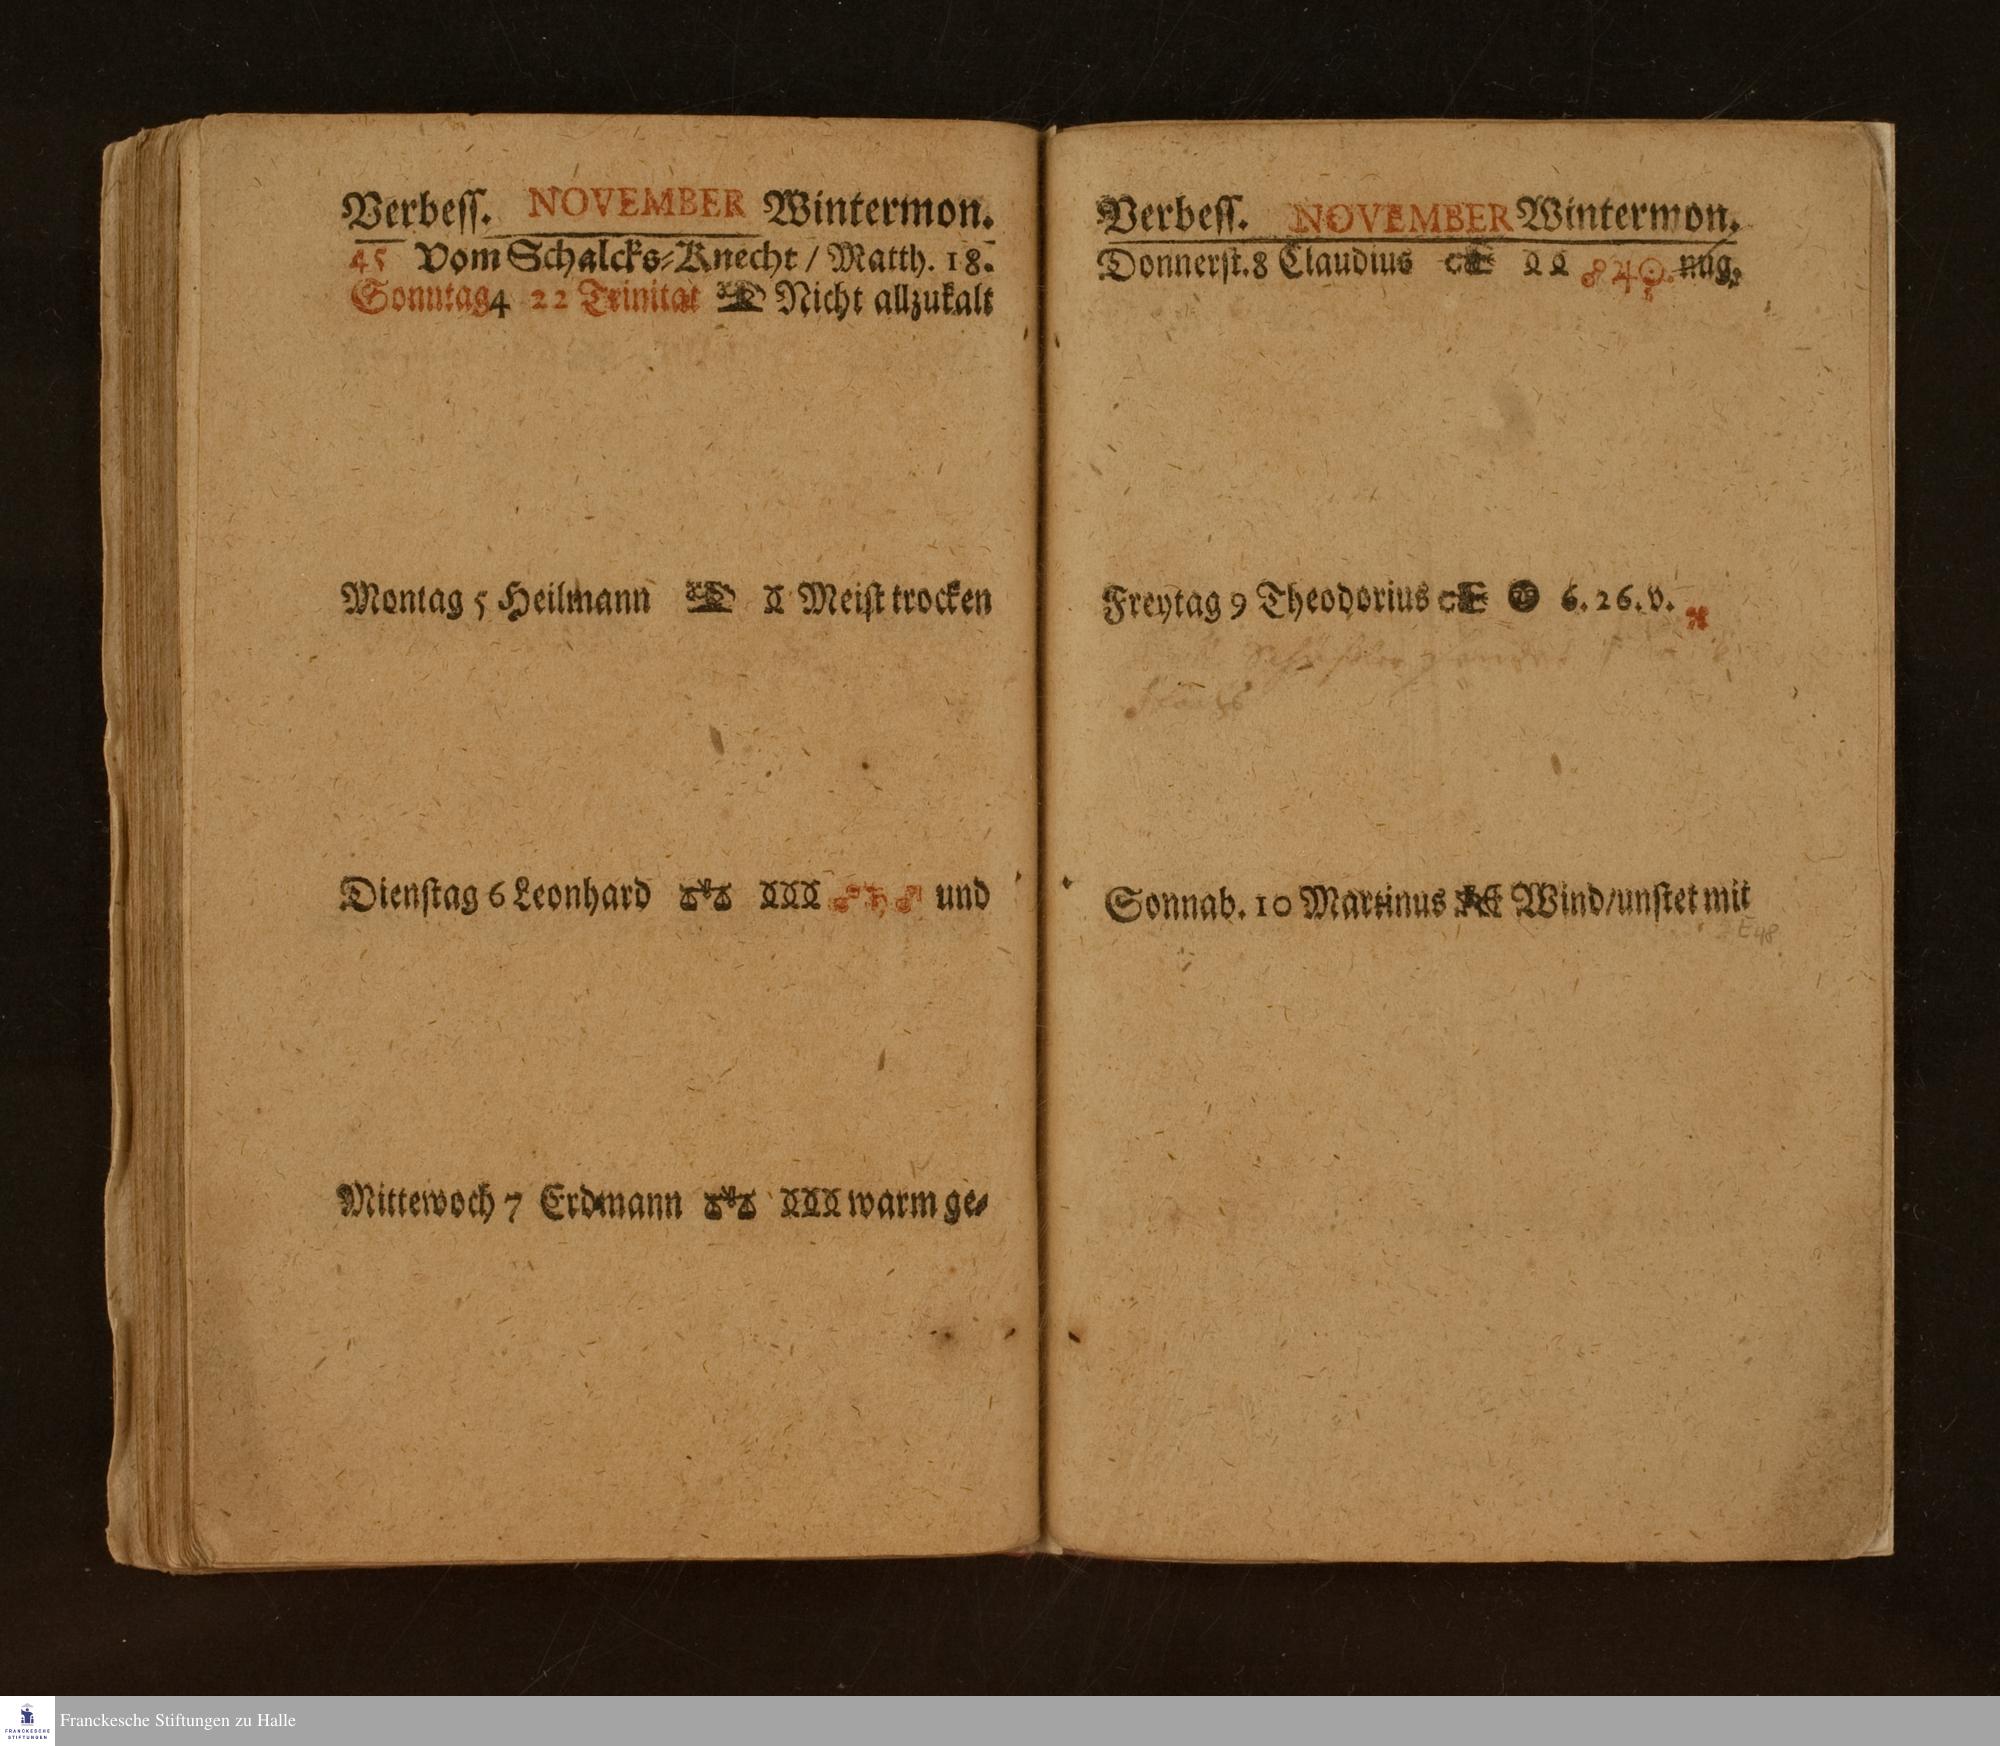 Verbess. NOVEMBER Wintermon.
45 Vom Schalcks-Knecht / Matth. 18.
Sonntag 4 22 Trinitat Nicht allzukalt
Montag 5 Heilmann Meist trocken
Dienstag 6 Leonhard ♂ ♄ ♂ und
Mittewoch 7 Erdmann warm ge-
Verbess. NOVEMBER Wintermon.
Donnerst. 8 Claudius ☍ ♃ ☉. nug.
Freytag 9 Theodorius 6. 26. v.
Sonnab. 10 Martinus Wind/unstet mit
E48
Franckesche Stiftungen zu Halle
FRANCKESCHE
STIFTUNGEN